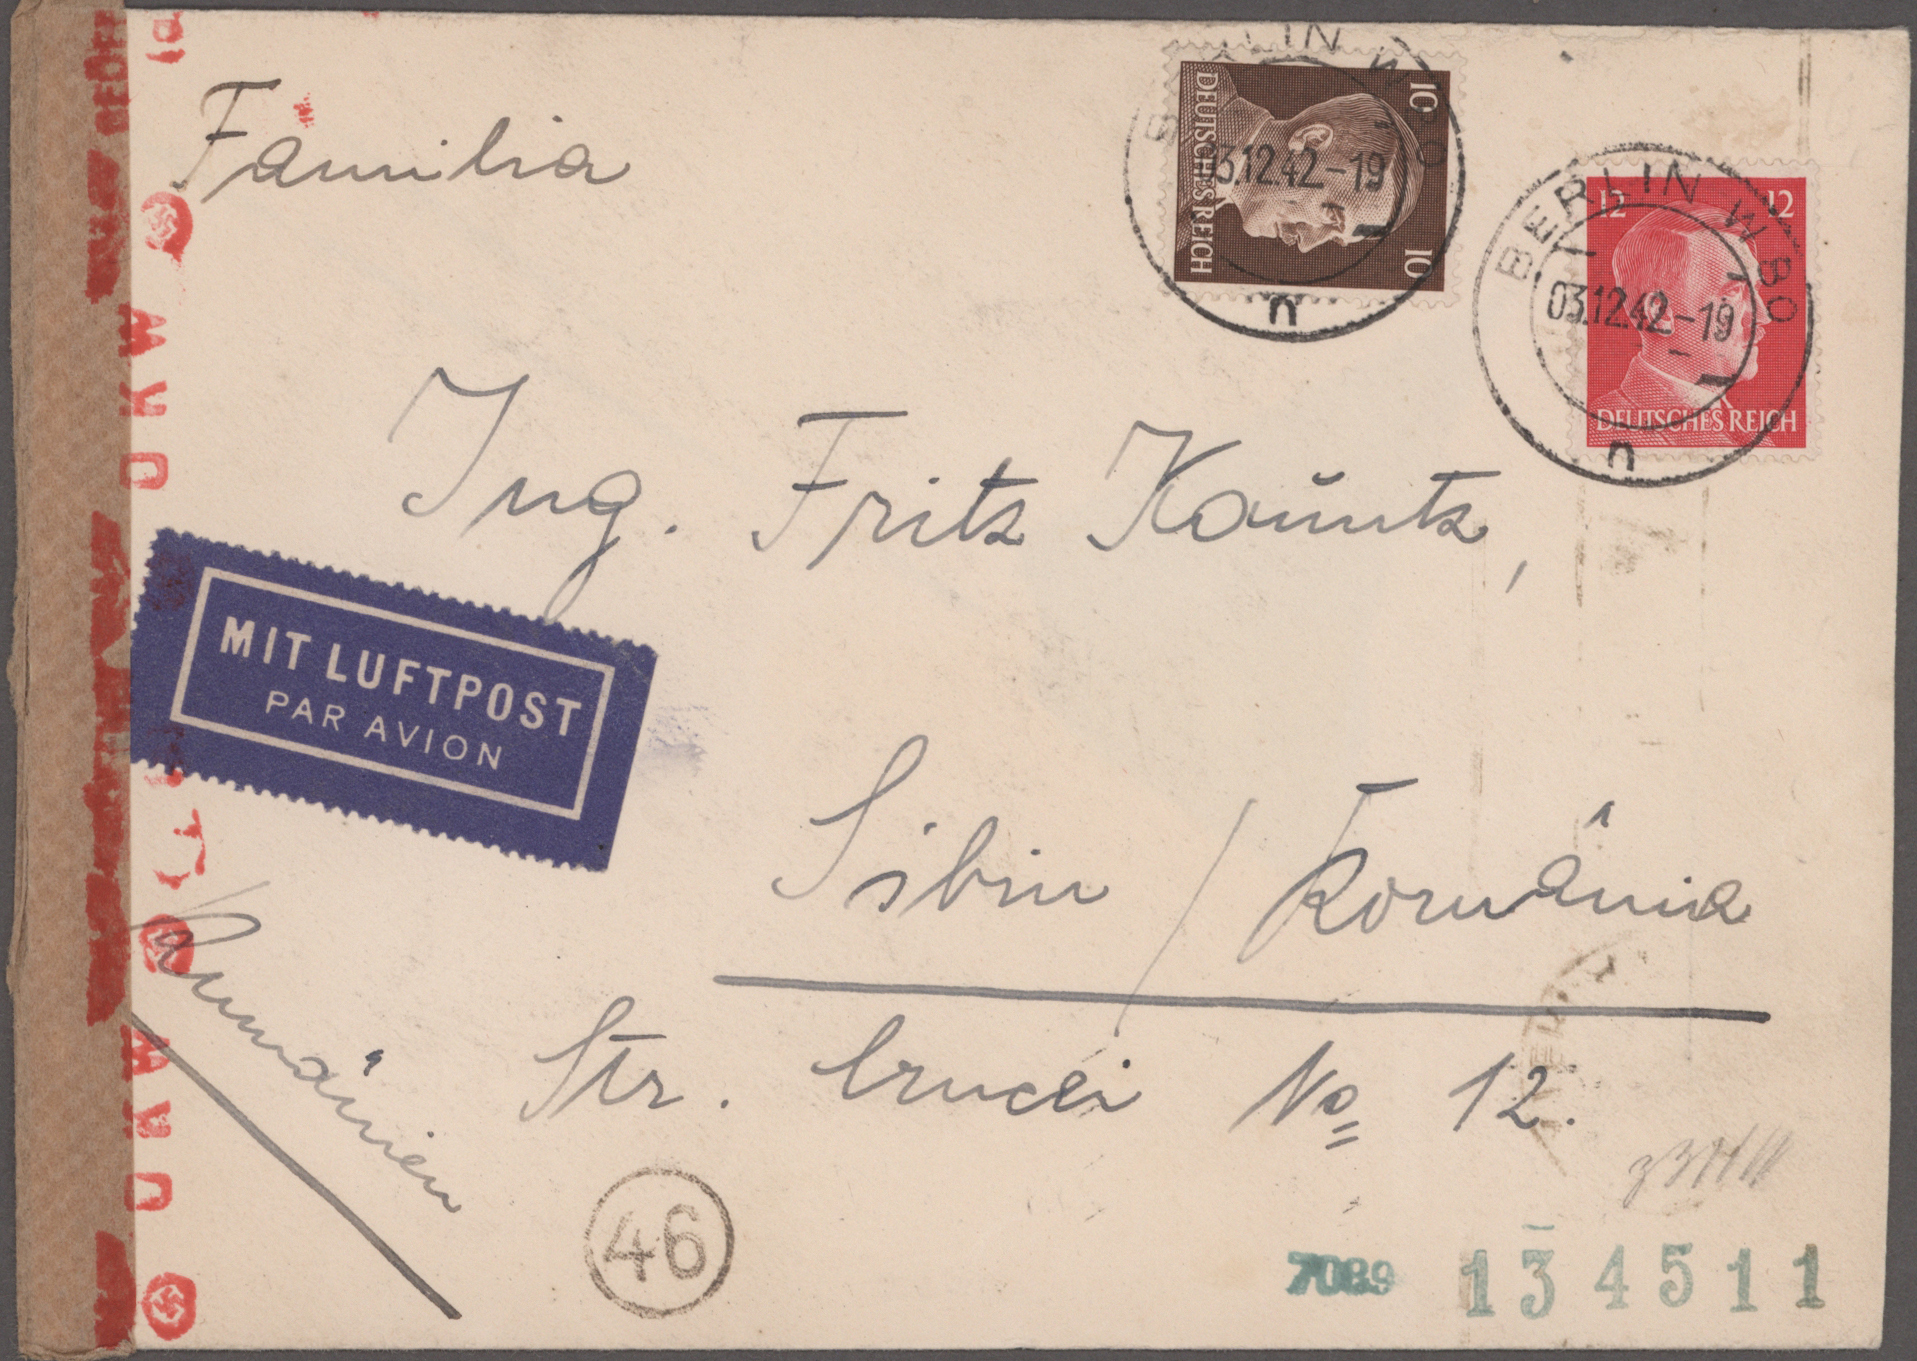 Familia
10
10
DEUTSCHES REICH
BERLIN W 80
03.12.42-19
n
12
12
DEUTSCHES REICH
BERLIN W 80
03.12.42-19
n
Ing. Fritz Kaŭntz,
MIT LUFTPOST
PAR AVION
Sibiu / România
Rumänien
Str. Crucei No 12.
46
7089
134511
OKW
OKW